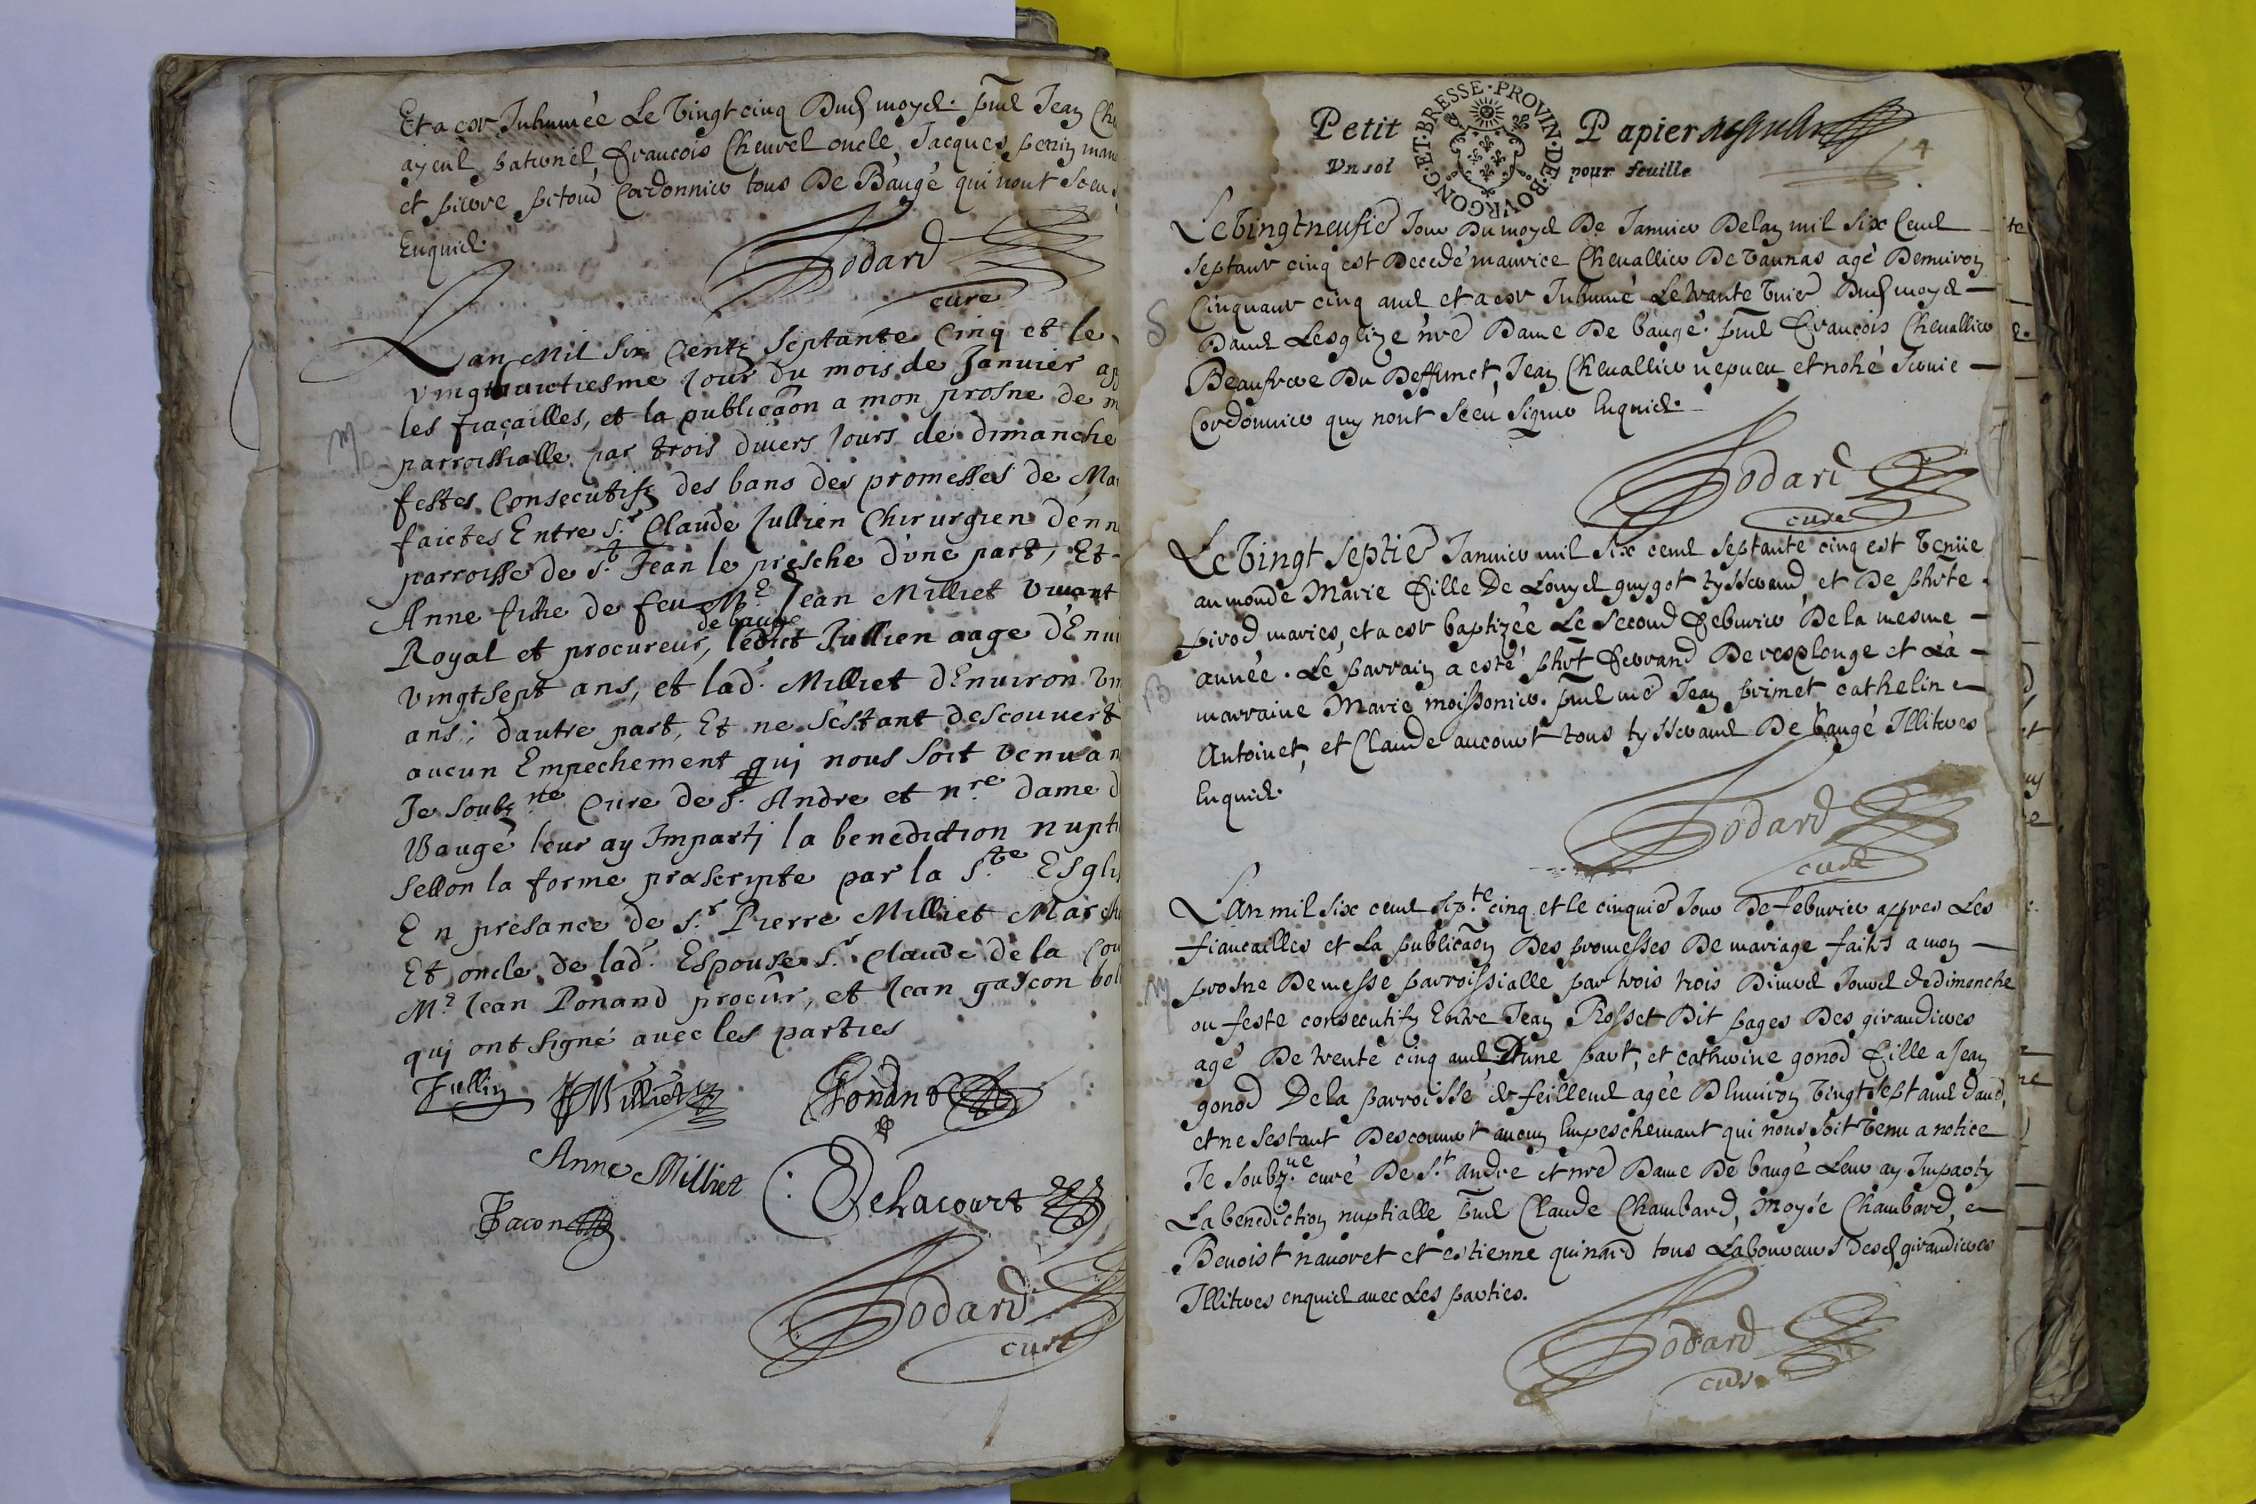 Et a esté Inhumée Le vingt cinq Dud moys. pnt Jean
ayeul paternel, francois Cheurel oncle, Jacques perrin
et pierre pitoud Cordonnier tous De Baugé qui nont sceu
Enquis.
Bodard
curé
Lan Mil Six Centz Septante Cinq et le
vingthuictiesme Jour du mois de Janvier
les fiaçailles, et la publicaon a mon prosne de
parroissialle par trois divers Jours de dimanche
festes Consecutifz des bans des promesses de
faictes Entre s.r Claude Jullien Chirurgien
parroisse de s.t Jean le presche dvne part, Et
Anne fille de feu M.e Jean Milliet vivant
de baugé
Royal et procureur, ledict Jullien aage
vingtsept ans, et lad. Milliet dEnviron
ans; dautre part, Et ne s'estant descouvert
aucun Empechement qui nous soit venu a
Je soubz.ne Cure de s.t Andre et n.re dame
Baugé leur ay Imparti la benediction
sellon la forme prescripte par la s.te
En presance de s.r Pierre Milliet
Et oncle de lad. Espouse s.r Claude de la
M.e Jean Ponand procur, et Jean gascon
qui ont signé avec les parties
Jullin Milliet Ponand
Anne Milliet Delacourt
Gacon
Bodard
curé
Petit Papier
BRESSE·PROVIN·DE·BOVRGONG·ET
Vn sol pour feuille
4
Le vingtneufie Jour Du moys De Janvier De lan mil six Cent
septante cinq est Decedé maurice Chevallier De agé Denviron
Cinquante cinq ans et a esté Inhumé Le trante unie Dud moys
Dans Lesglize nre Dame De baugé. pnt francois Chevallier
Beaufrere Du Deffunct, Jean Chevallier nepveu et
Cordonnier quy nont sceu signer Enquis.
S
Bodard
curé
Le vingt septie Janvier mil six cens septante cinq est venüe
au monde Marie fille De Louys guygot tysserand, et De phte
pirod mariés, et a esté baptizée Le second febvrier De la mesme
année. Le parrain a esté pht ferrand De replonge et La
marraine Marie moissonier. pns me Jean primet cathelin
Antoinet, et Claude aucourt tous tysserans De baugé Illitéres
Enquis.
B
Bodard
curé
Lan mil six cens sep.te cinq et le cinquie Jour De febvrier appres Les
fiancailles et La publicaon Des promesses De mariage faites a mon
prosne De messe parroissialle par trois trois Divers Jours de dimenche
ou feste consecutifz Entre Jean Rosset Dit pages Des girandieres
agé De trente cinq ans Dune part, et catherine gonod fille a Jean
gonod De la parroisse de feillens agée Denviron vingt sept ans Daut,
et ne sestant Descouvert aucun Empeschemant qui nous soit venu a notice
Je soubz.ne curé De s.t andre et nre Dame De baugé Leur ay Imparty
La benediction nuptialle pnt Claude Chambard, Moyse Chambard,
Benoist navoret et estienne quinard tous Laboureurs desd girandieres
Illiteres enquis avec Les parties.
M
Bodard
curé